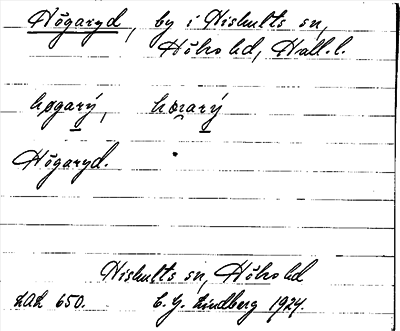 Högaryd, by i Nishults sn,
Höks hd, Hall. l.
høgarý, hœrarý
Högaryd.
Nishults sn, Höks hd
LAL 650. C. G. Lindberg 1924